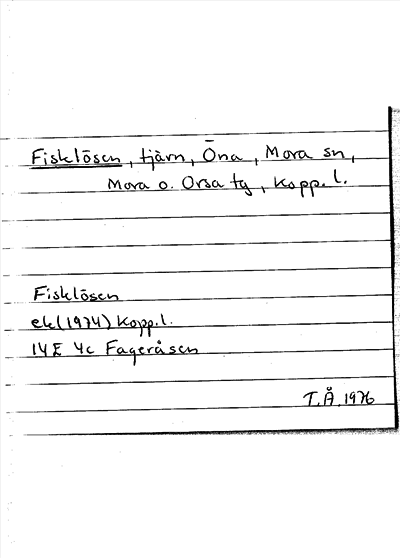 Fisklösen, tjärn, Öna, Mora sn,
Mora o. Orsa tg, Kopp. l.
Fisklösen
ek(1974) Kopp.l.
14E 4c Fageråsen
T.Å. 1976